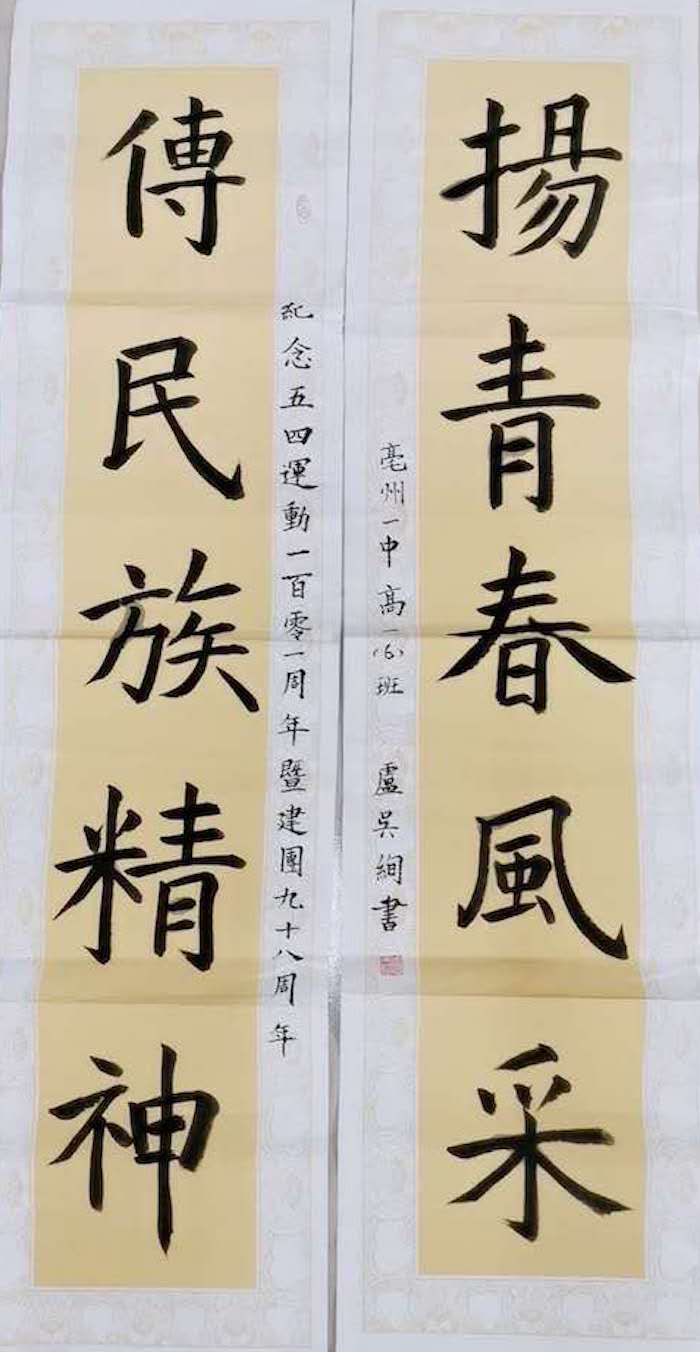 揚青春風采
亳州一中高一(6)班 盧吴絢書
紀念五四運動一百零一周年暨建團九十八周年
傳民族精神